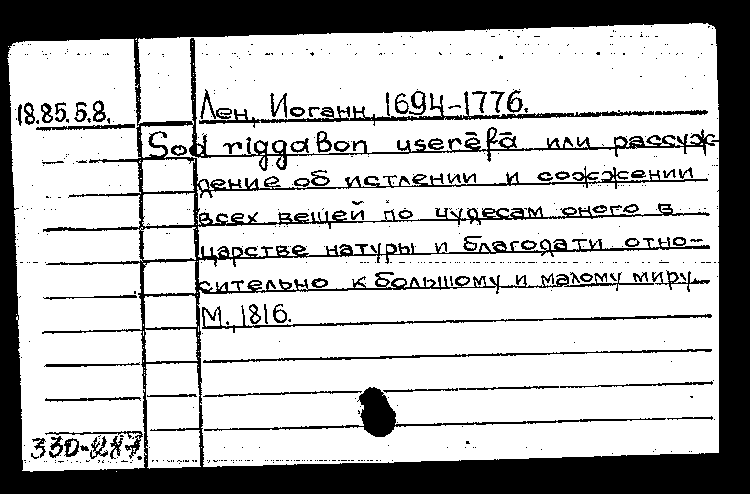 18.85.5.8.
Лен, Иоганн, 1694-1776.
Sod riggaBon userēfā или рассуж-
дение об истлении и сожжении
всех вещей по чудесам оного в
царстве натуры и благодати отно-
сительно к большому и малому миру.
М., 1816.